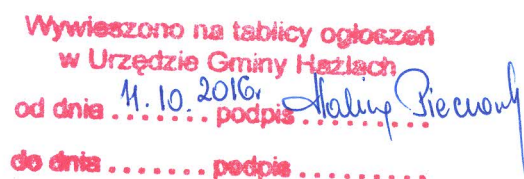 Wywieszono na tablicy ogłoszeń
w Urzędzie Gminy Hażlach
od dnia 11.10.2016r. podpis Halina
do dnia ........ podpis ..........